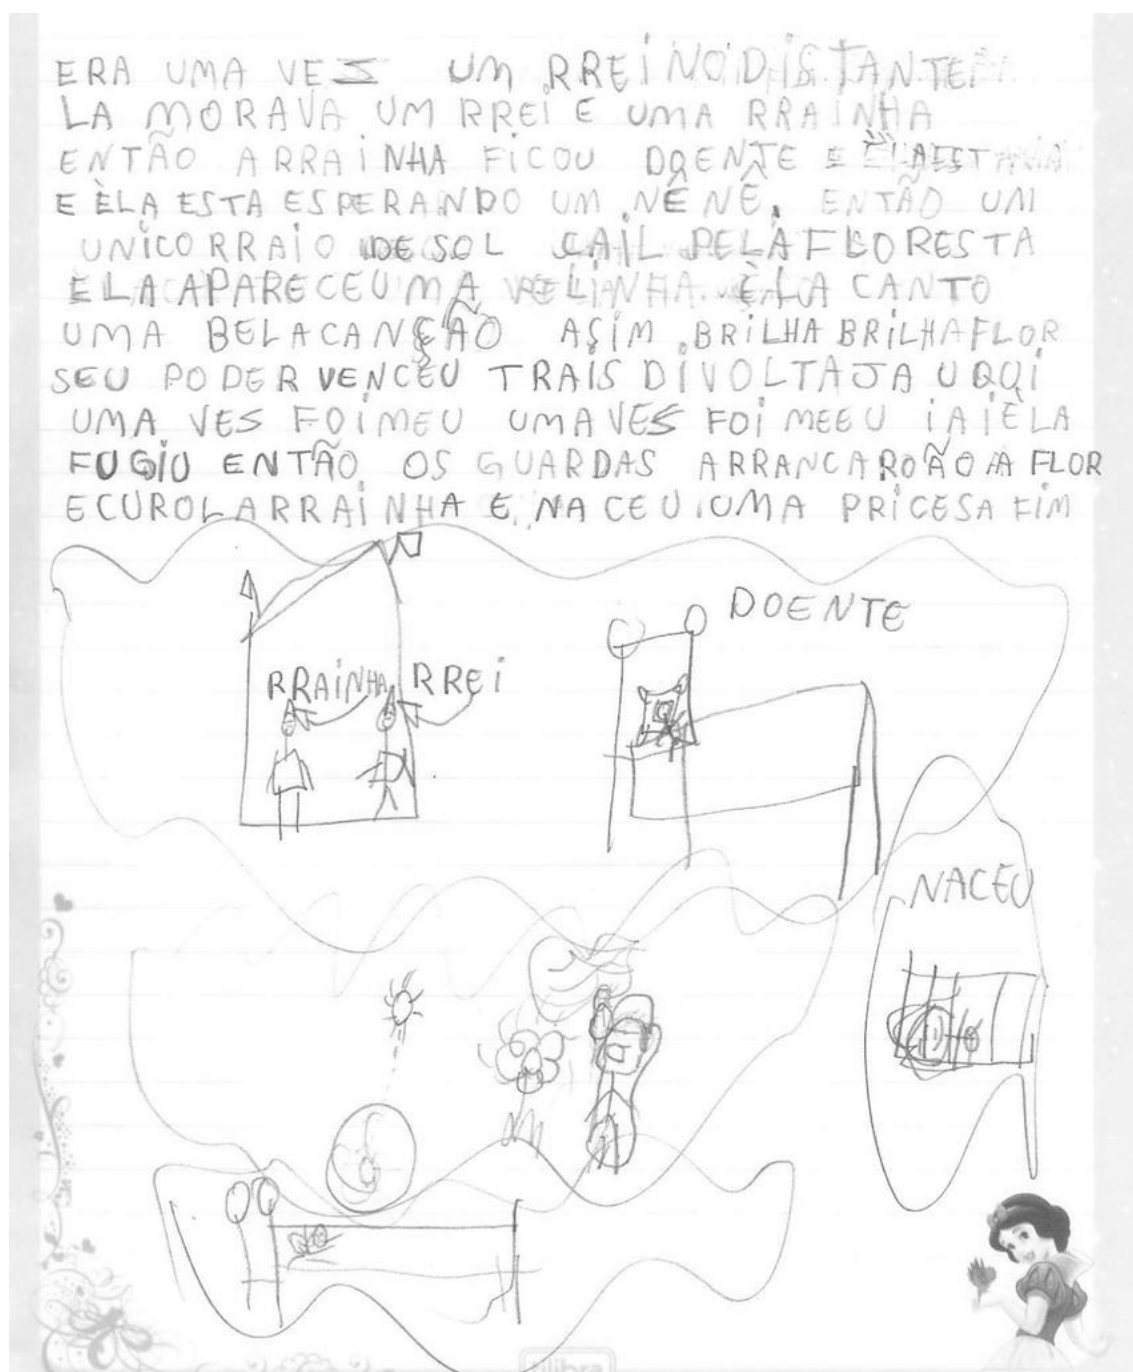 ERA UMA VES UM RREINO DISTANTE
LA MORAVA UM RREI E UMA RRAINHA
ENTÃO ARRAINHA FICOU DOENTE E ÈLAESTAVA
E ÈLA ESTA ESPERANDO UM NÉNÊ. ENTÃO UM
UNICO RRAIO DE SOL CAIL PELA FLORESTA
ELA APARECEU MA VELINHA. ÈLA CANTO
UMA BELACANSÃO ASIM BRILHA BRILHA FLOR
SEU PODER VENCEU TRAIS DIVOLTAJA UQQI
UMA VES FOIMEU UMAVES FOI MEEU IAIÈLA
FUGIU ENTÃO OS GUARDAS ARRANCAROÃO A FLOR
ECUROLARRAINHA E NACEU UMA PRICESA FIM
DOENTE
RRAINHA RREI
NACEU
tilibra